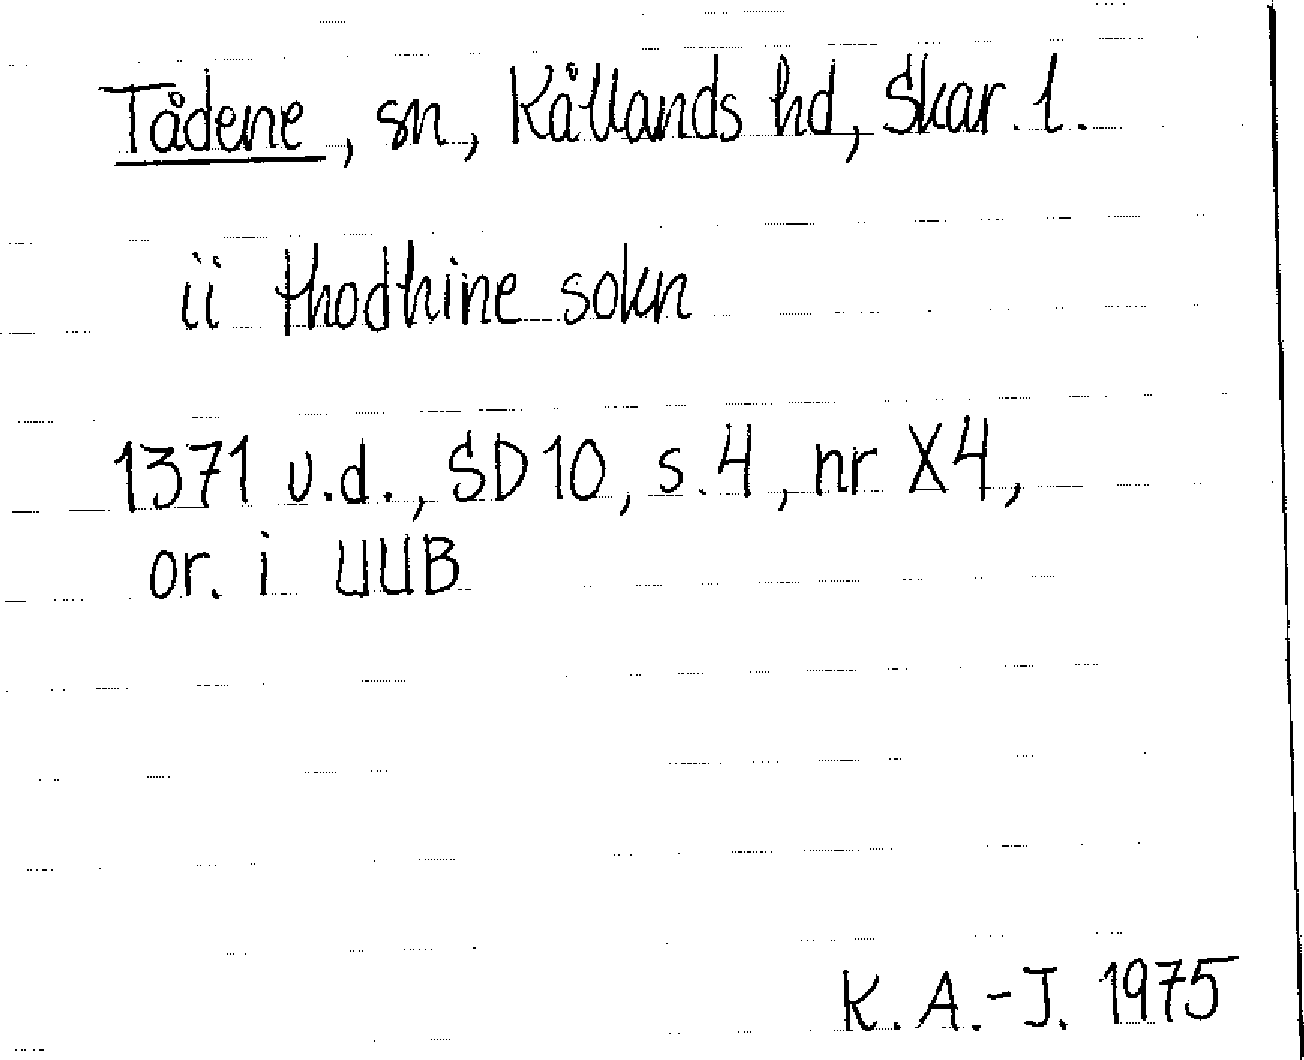 Tådene, sn, Kållands hd, Skar. l.
ii thodhine sokn
1371 u.d., SD 10, s. 4, nr X4,
or. i UUB
K. A.-J. 1975